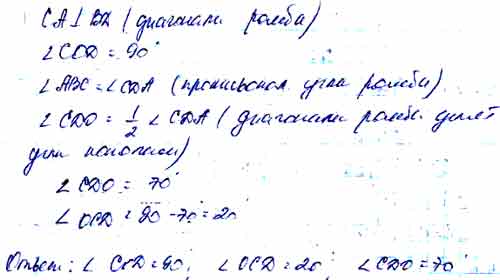 CA⊥BD (диагонали ромба)
∠COD = 90°
∠ABC = ∠CDA (противопол. углы ромба)
∠CDO = 1/2 ∠CDA (диагонали ромба делят
углы пополам)
∠CDO = 70°
∠OCD = 90 - 70 = 20°
Ответ: ∠COD = 90°, ∠OCD = 20°, ∠CDO = 70°